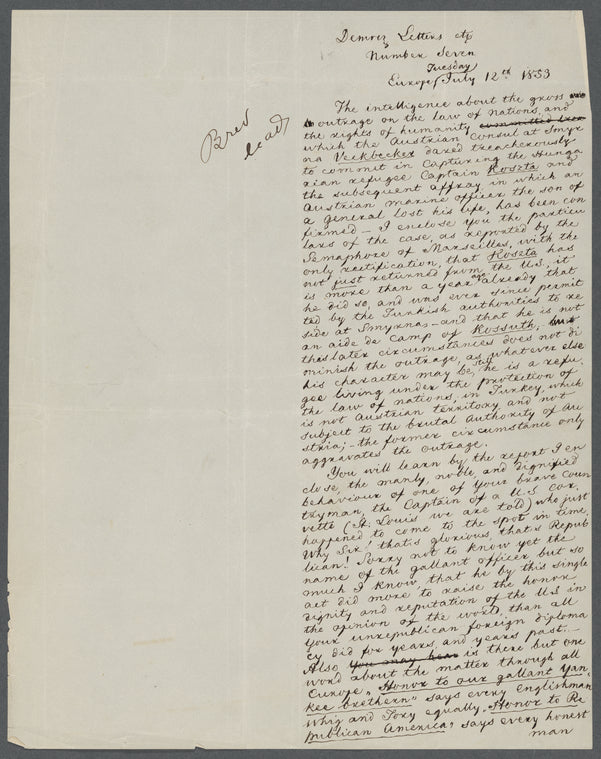 Demoez Letters etc
Number Seven
Tuesday
Europe July 12th 1853
Brev
lead
The intelligence about the gross
outrage on the law of nations, and
the rights of humanity committed
which the Austrian Consul at Smyr
na Veckbecker dared treacherously
to commit in Capturing the Hunga
rian refugee Captain Koszta and
the subsequent affray in which an
Austrian marine officer the son of
a General lost his life, has been con
firmed – I enclose you the particu
lars of the case, as reported by the
Semaphore of Marseilles, with the
only rectification, that Koszta has
not just returned from the U.S. it
is more than a year ago already that
he did so, and was ever since permit
ted by the Turkish authorities to re
side at Smyrna, – and that he is not
an aide de Camp of Kossuth, but
this later circumstances does not di
minish the outrage, as whatever else
his character may be, still he is a refu
gee living under the protection of
the law of nations, in Turkey, which
is not Austrian territory and not
subject to the brutal authority of Au
stria; – the former circumstance only
aggravates the outrage.
You will learn by the report I en
close, the manly, noble and dignified
behaviour of one of your brave coun
tryman, the Captain of a U.S cor
vette (St. Louis we are told) who just
happened to come to the spot in time.
Why Sir! that's glorious, that's Repub
lican! Sorry not to know yet the
name of the gallant officer but so
much I know, that he by this single
act did more to raise the honor
dignity and reputation of the U.S in
the opinion of the world, than all
your unrepublican foreign diploma
cy did for years, and years past. –
Also You may hear is there but one
word about the matter through all
Europe, "Honor to our gallant Yan
kee brethern" says every Englishman
Whig and Tory equally, "Honor to Re
publican America" says every honest
man